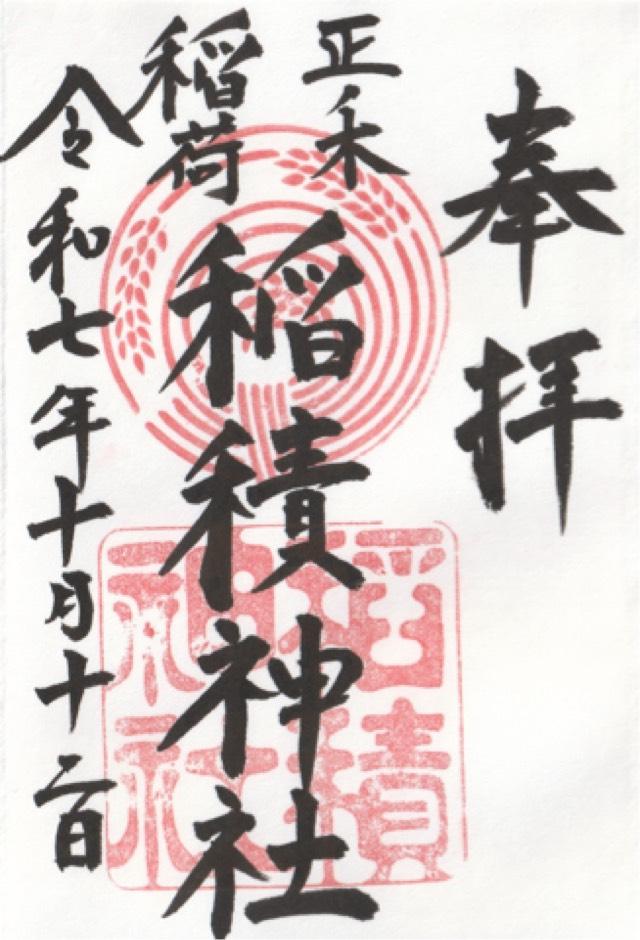 奉拝
正木
稲荷
稲積神社
令和七年十月十二日
稲積
神社